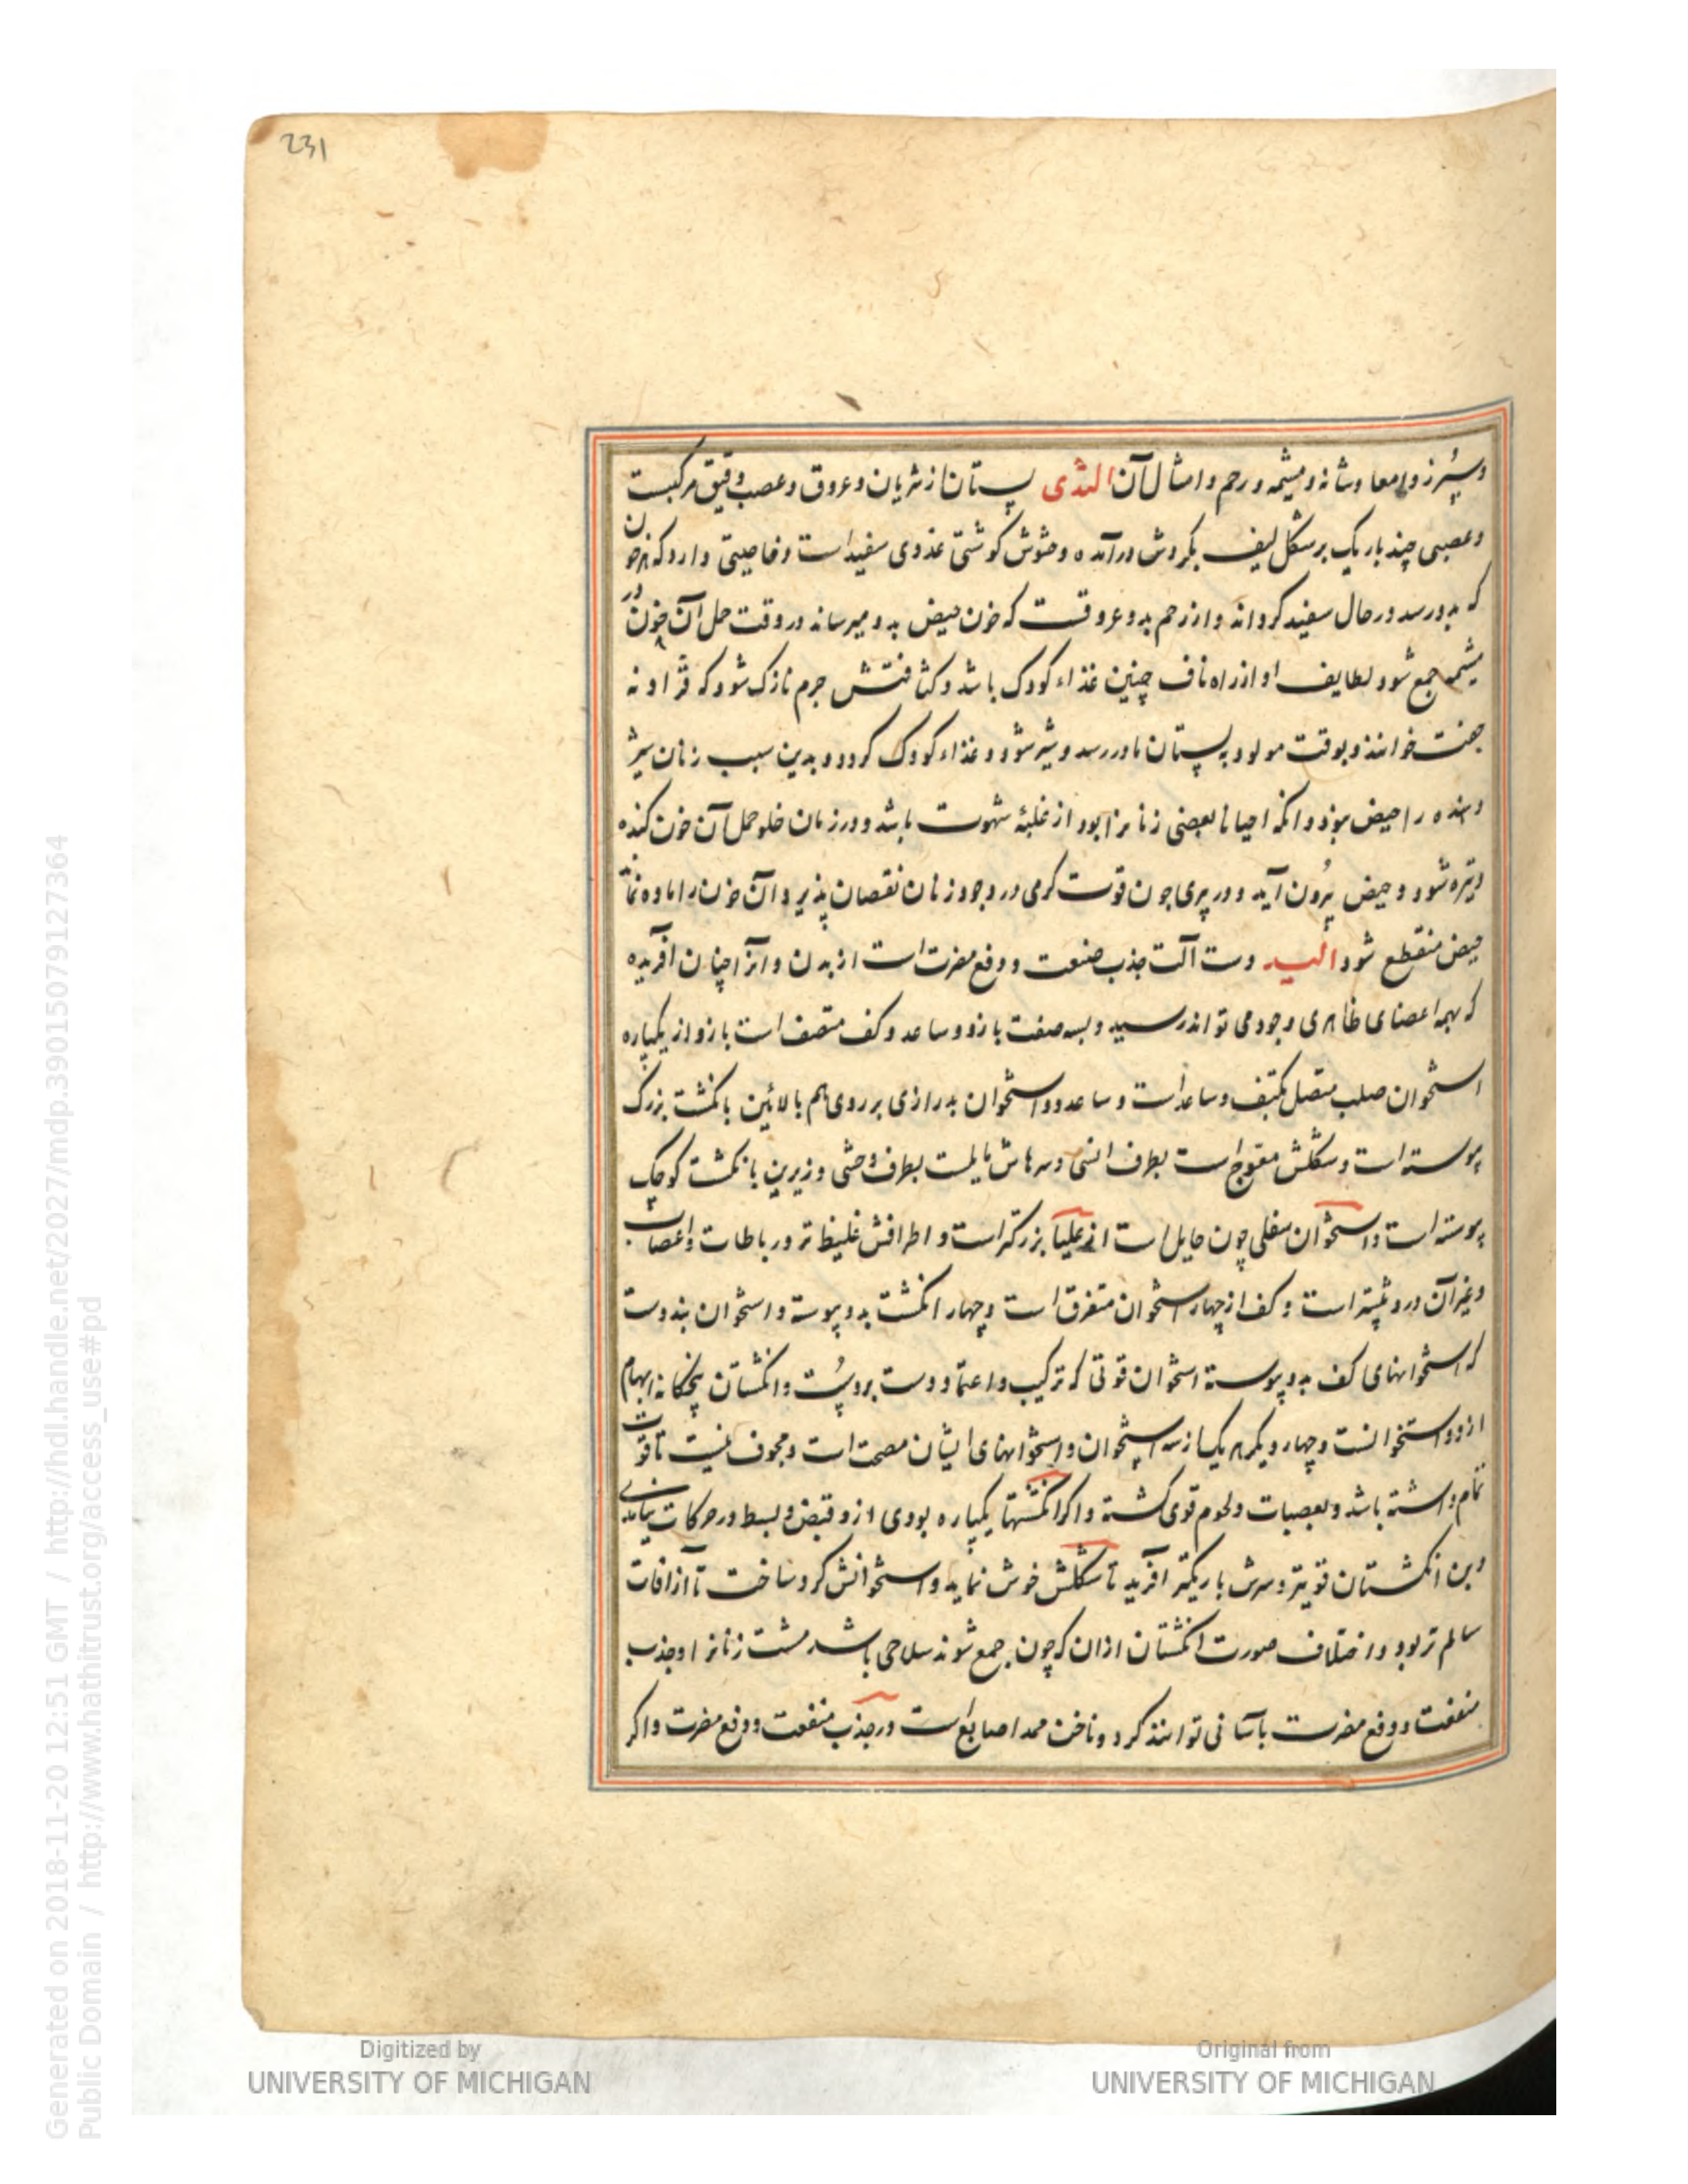 231
وسپرز و امعا و مثانه و مشیمه و رحم و امثال آن الثدی پستان از شریان و عروق و عصب دقیق مرکبست
و عصبی چند باریک بر شکل لیف بگردش درآمده و حشوش گوشتی غددی سفید است و خاصیتی دارد که هر خون
که بدو رسد در حال سفید گرداند و از رحم بدو عروقست که خون حیض بدو میرساند در وقت حمل آن خون در
مشیمه جمع شود لطایف او از راه ناف جنین غذاء کودک باشد و کثافتش جرم نازک شود که قژاونه
جفت خوانند و بوقت مولود به پستان مادر رسد و شیر شود و غذاء کودک گردد و بدین سبب زنان شیر
دهنده را حیض نبود و انکه احیانا بعضی زنانرا بود از غلبهٔ شهوت باشد و در زمان خلو حمل آن خون کنده
و تیره شود و حیض بیرون آید و در پیری چون قوت گرمی در وجود زنان نقصان پذیرد آن خون را ماده نماند
حیض منقطع شود الید دست آلت جذب منفعت و دفع مضرت است از بدن و انرا چنان آفریده
که بهمه اعضای ظاهری وجود می تواند رسید و بسه صفت بازو و ساعد و کف متصف است بازو از یکپاره
استخوان صلب متصل بکتف و ساعد است و ساعد دو استخوان بدرازی بر روی هم بالائین بانکشت بزرک
پیوسته است و شکلش معوج است بطرف انسی و سرهاش مایلست بطرف وحشی و زیرین بانکشت کوچک
پیوسته است و استخوان سفلی چون حامل است از علیا بزرکتر است و اطرافش غلیظ تر و رباطات و اعصاب
و غیر آن درو بیشتر است و کف از چهار استخوان متفرق است و چهار انکشت بدو پیوسته و استخوان بند دست
که استخوانهای کف بدو پیوسته استخوان قوتی که ترکیب و اعتماد دست بروست و انکشتان پنجکانه ابهام
از دو استخوانست و چهار دیکر هر یک از سه استخوان و استخوانهای ایشان مصمت است و مجوف نیست تا قوت
تمام داشته باشد و بعصبات و لحوم قوی کشته و اکر انکشتها یکپاره بودی ازو قبض و بسط در حرکات نیامدی
و بن انکشتان قویتر و سرش باریکتر آفرید تا شکلش خوش نماید و استخوانش گرد ساخت تا از آفات
سالم تر بود و اختلاف صورت انکشتان ازان که چون جمع شوند سلاحی باشد مشت زنانرا و جذب
منفعت و دفع مضرت باسانی توانند کرد و ناخن ممد اصابع است در جذب منفعت و دفع مضرت و اکر
Generated on 2018-11-20 12:51 GMT / http://hdl.handle.net/2027/mdp.39015079127364
Public Domain / http://www.hathitrust.org/access_use#pd
Digitized by
UNIVERSITY OF MICHIGAN
Original from
UNIVERSITY OF MICHIGAN